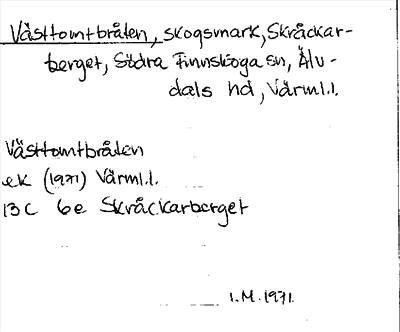 Västtomtbråten, skogsmark, Skråckar-
berget, Södra Finnskoga sn, Älv-
dals hd, Värml.l.
Västtomtbråten
ek (1971) Värml.l.
13C 6e Skråckarberget
I.M. 1971.